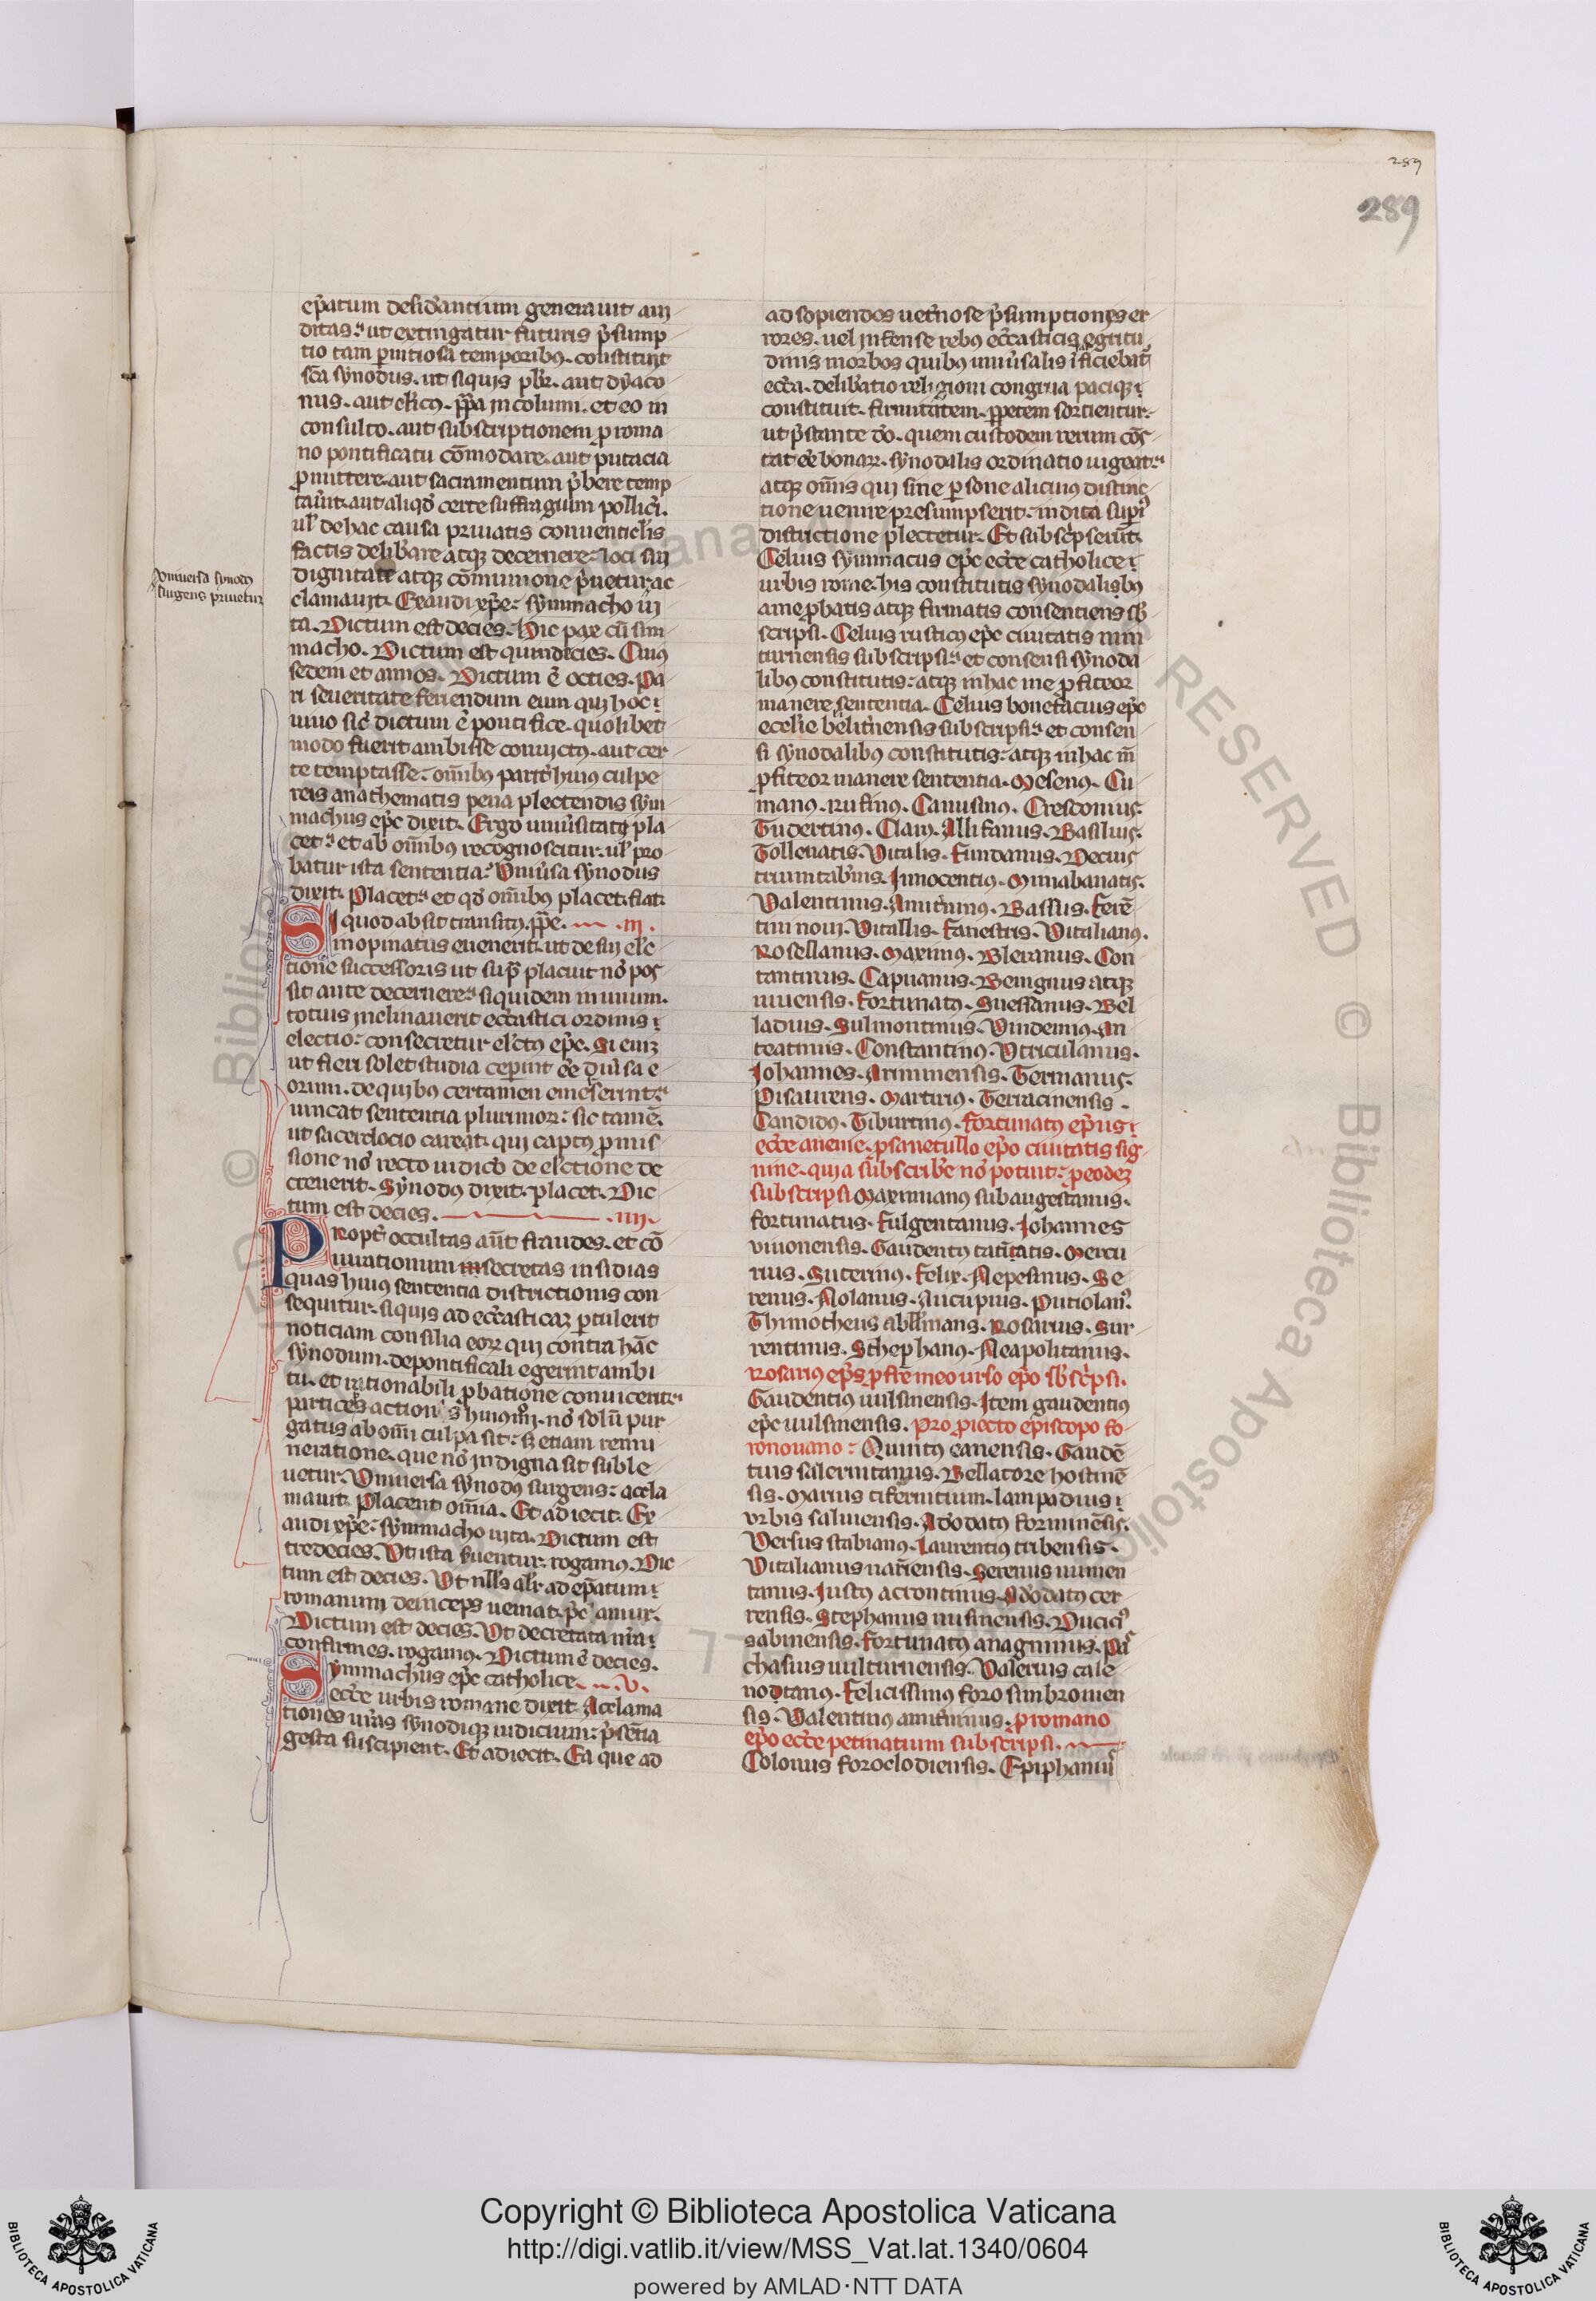 289
289
ep̄atum desid̓antium generauit aui
ditas. ut extingatur futuris p̄sump
tio tam p̱nitiosa temporibꝰ. constituit
sc̄a synodus. ut siquis pb̄r. aut dyaco
nus. aut cl̓icꝰ. pp̄a incolumi. et eo in
consulto. aut subscriptionem ꝓ roma
no pontificatu cōmodare. aut pitacia
ꝓmittere. aut sacramentum p̄bere temp
tau̓it. aut aliqd̓ certe suffragium pollic̓i.
ul̓ de hac causa priuatis conuenticl̓is
factis delib̓are atqꝫ decernere. loci sui
dignitate atqꝫ cōmunione p̄uetur. ac
clamauit. Exaudi xp̄e. symmacho ui
ta. Dictum est decies. Hic pax cū sim
macho. Dictum est quindecies. Cuiꝰ
sedem et annos. Dictum ē octies. Pa
ri seueritate feriendum eum qui hoc
uiuo sic̓ dictum ē pontifice. quolibet
modo fuerit ambisse conuictꝰ. aut cer
te temptasse. om̄ibꝰ parit̓ huiꝰ culpe
reis anathematis pena plectendis sym
machus ep̄c dixit. Ergo uniu̓sitati pla
cet. et ab om̄ibꝰ recognoscitur. ul̓ pro
batur ista sententia. Vniu̓sa synodus
dixit. Placet. et qd̓ om̄ibꝰ placet. fiat.
SI quod absit transitꝰ. pp̄e. .iii.
inopinatus euenerit. ut de sui el̓c
tione successoris ut sup̄ placuit nō pos
sit ante decernere. siquidem in unum.
totius inclinauerit ecc̄astici ordinis
electio. consecretur el̓ctꝰ ep̄c. Si eniꝫ
ut fieri solet studia cep̱int ēe diu̓sa e
orum. de quibꝰ certamen emerserint.
uincat sententia plurimoꝝ. sic tamē.
ut sacerdocio careat. qui captꝰ ꝓmis
sione nō recto iudicio de el̓ctione de
creuerit. Synodꝰ dixit. placet. Dic
tum est decies. .iiii.
PRopt̓ occultas aūt fraudes. et cō
iurationum secretas insidias
quas huiꝰ sententia districtionis con
sequitur. siquis ad ecc̄asticaꝫ p̱tulerit
noticiam consilia eoꝝ qui contra hāc
synodum. de pontificali egerint ambi
tu. et rationabili ꝓbatione conuicerit.
particeps actionis huiꝰmōi. nō solū pur
gatus ab om̄i culpa sit. sꝫ etiam remu
neratione. que nō indigna sit suble
uetur. Vniuersa synodꝰ surgens. accla
mauit. Placent om̄ia. Et adiecit. Ex
audi xp̄e. symmacho uita. Dictum est
tredecies. Vt ista s̓uentur. rogamꝰ. Dic
tum est decies. Vt nll̓s alr̓ ad ep̄atum
romanum deinceps ueniat. p̄camur.
Dictum est decies. Vt decretata nr̄a
confirmes. rogamꝰ. Dictum ē decies.
Symmachus ep̄c catholice. .v.
ecc̄e urbis romane dixit. Acclama
tiones ur̄as synodiqꝫ iudicium. p̄sētia
gesta suscipient. Et adiecit. Ea que ad
Vniuersa synodꝰ
surgens priuetur
ad sopiendos uet̓nose p̄sumptiones er
rores. uel infense rebꝰ ecc̄asticis egritu
dinis morbos quibꝰ uniu̓salis īficiebat̄
ecc̄a. delib̓atio religioni congrua paciqꝫ
constituit. firmitatem. ꝑpetem sortientur.
ut p̄stante dō. quem custodem rerum cōs
tat ēe bonaꝝ. synodalis ordinatio uigeat.
atqꝫ om̄is qui sine ꝑsone alicuiꝰ distinc
tione uenire presumpserit. indita sup̱iꝰ
districtione plectetur. Et subsc̓pserūt.
Celius symmacus ep̄c ecc̄e catholice
urbis rome. his constitutis synodalisbꝰ
a me ꝓbatis atqꝫ firmatis consentiens sb̓
scripsi. Celius rusticꝰ ep̄c ciuitatis min
turnensis subscripsi. et consensi synoda
libꝰ constitutis. atqꝫ in hac me ꝓfiteor
manere sententia. Celius bonefacius ep̄c
ecclesie belit̓nensis subscripsi. et consen
si synodalibꝰ constitutis. atqꝫ in hac m̄
ꝓfiteor manere sententia. Meseniꝰ. Cu
manꝰ. Rufinꝰ. Canusinꝰ. Cresconius.
Tudertinꝰ. Clarꝰ. Allifanus. Basiliꝰ.
Tollenatis. Vitalis. Fundanus. Decius
triumtab̓ius. Innocentiꝰ. Minabanatis.
Valentinus. Amit̓ninꝰ. Bassus. Ferē
tini noui. Vitallis. Fanestris. Vitalianꝰ.
Rosellanus. Maximꝰ. Bleranus. Con
tantinus. Capuanus. Benignus atqꝫ
uiuensis. Fortunatꝰ. Suessanus. Bel
ladius. Sulmontinus. Vindemiꝰ. An
teatinus. Constantinꝰ. Vtriculanus.
Johannes. Ariminensis. Germanus.
Pisaurens. Martirius. Terracinensis.
Candidꝰ. Tiburtinꝰ. Fortunatꝰ ep̄us
ecc̄e anenie. ꝓ sanctullo ep̄o ciuitatis sig
nine. quia subscrib̓e nō potuit. ꝓ eodeꝫ
subscripsi Maximianꝰ sub augestanus.
Fortunatus. Fulgentanus. Johannes
uiuonensis. Gaudentꝰ tatic̓atis. Mercu
rius. Suterinꝰ. Felix. Nepesinus. Se
renus. Nolanus. Aucupius. Putiolanꝰ.
Thimotheus abll̓inans. Rosarius. Sur
rentinus. Sthephanꝰ. Neapolitanus.
Rosariꝰ ep̄s ꝓ fr̄e meo urso ep̄o sb̓sc̓psi.
Gaudentius uulsinensis. Item gaudentiꝰ
ep̄c uulsinensis. Pro proiecto episcopo fo
ronouano. Quintꝰ eanensis. Gaudē
tius salernitanus. Bellatore hostinē
sis. Marius tifernitium. lampadius
urbis saluiensis. Adōdatꝰ forminēsis.
Versus stabianꝰ. Laurentiꝰ tribensis.
Vitalianus narn̄ensis. Serenus numen
tanus. Justꝰ acrontinus. Adōdatꝰ cer
rensis. Stephanus nusinensis. Duciciꝰ
sabinensis. Fortunatꝰ anagninus. Pas
chasius uulturnensis. Valerius cale
nodtanꝰ. Felicissimꝰ foro simbronien
sis. Valentinꝰ amit̓ninus. ꝓ romano
ep̄o ecc̄e petinatium subscripsi.
Colonus foroclodiensis. Epiphaniꝰ
Copyright © Biblioteca Apostolica Vaticana
http://digi.vatlib.it/view/MSS_Vat.lat.1340/0604
powered by AMLAD·NTT DATA
BIBLIOTECA APOSTOLICA VATICANA
BIBLIOTECA APOSTOLICA VATICANA